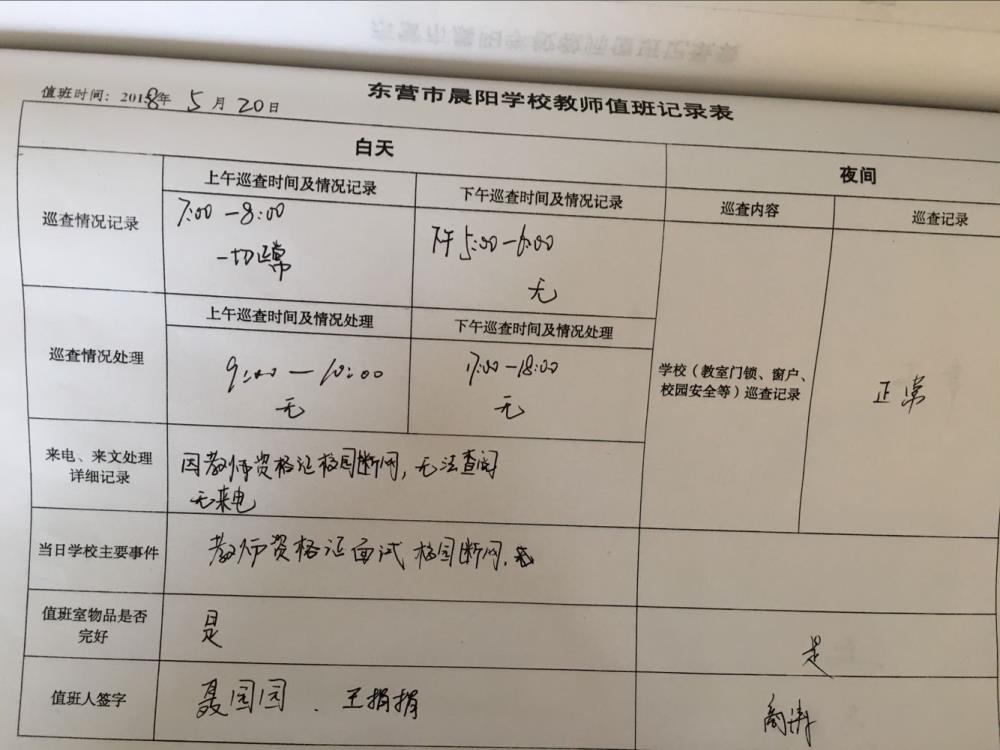 东营市晨阳学校教师值班记录表
值班时间：2018年 5月 20日
白天
夜间
巡查情况记录
上午巡查时间及情况记录
下午巡查时间及情况记录
巡查内容
巡查记录
7:00-8:00
一切正常
下午5:00-6:00
无
巡查情况处理
上午巡查时间及情况处理
下午巡查时间及情况处理
9:00-10:00
无
17:00-18:00
无
学校（教室门锁、窗户、
校园安全等）巡查记录
正常
来电、来文处理
详细记录
因教师资格证校园断网，无法查阅
无来电
当日学校主要事件
教师资格证面试校园断网.
值班室物品是否
完好
是
是
值班人签字
聂园园 . 王娟娟